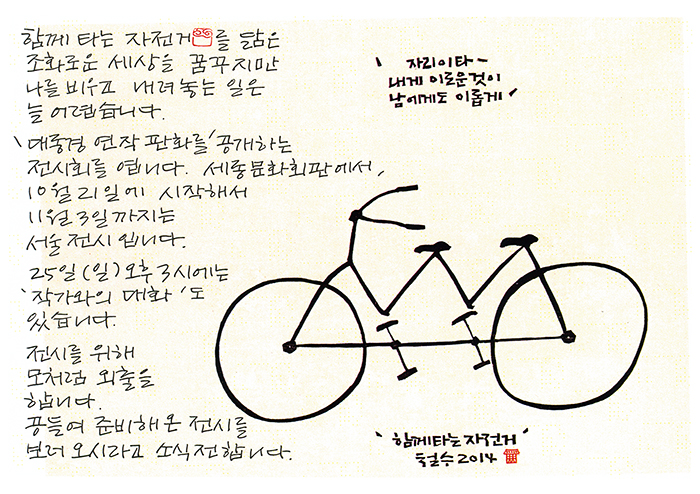 함께 타는 자전거를 닮은
조화로운 세상을 꿈꾸지만
나를 비우고 내려놓는 일은
늘 어렵습니다.
'대종경 연작 판화를' 공개하는
전시회를 엽니다. 세종문화회관에서,
10월 21일에 시작해서
11월 3일까지는
서울 전시 입니다.
25일(일) 오후 3시에는
'작가와의 대화'도
있습니다.
전시를 위해
모처럼 외출을
합니다.
공들여 준비해온 전시를
보러 오시라고 소식 전합니다.
'자리이타-
내게 이로운 것이
남에게도 이롭게'
'함께 타는 자전거'
철수 2014